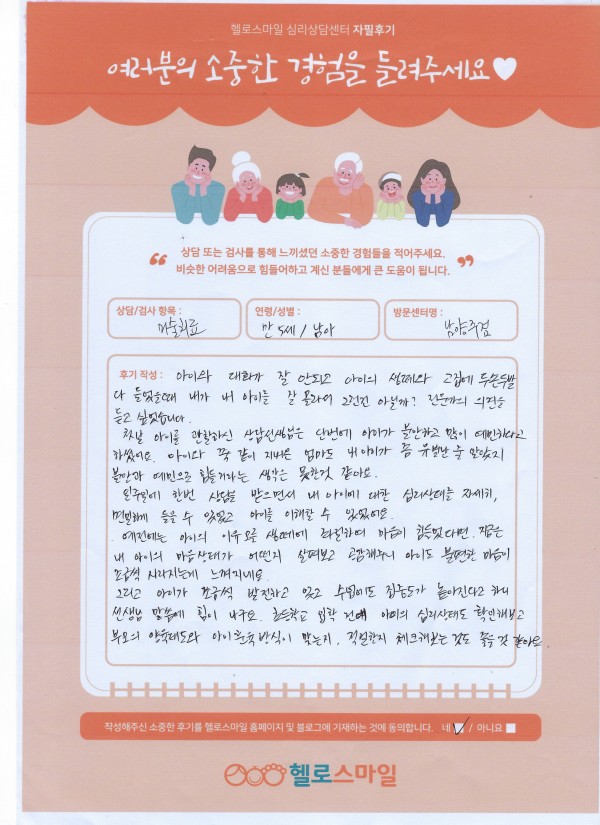 헬로스마일 심리상담센터 자필후기
여러분의 소중한 경험을 들려주세요♥
“ 상담 또는 검사를 통해 느끼셨던 소중한 경험들을 적어주세요.
비슷한 어려움으로 힘들어하고 계신 분들에게 큰 도움이 됩니다. ”
상담/검사 항목 : 미술치료
연령/성별 : 만 5세 / 남아
방문센터명 : 남양주점
후기 작성 : 아이와 대화가 잘 안되고 아이의 생떼와 고집에 두손두발
다 들었을때 내가 내 아이를 잘 몰라서 그런건 아닐까? 전문가의 의견을
듣고 싶었습니다.
첫날 아이를 관찰하신 상담선생님은 단번에 아이가 불안하고 많이 예민하다고
하셨어요. 아이와 쭉 같이 지내온 엄마도 내 아이가 좀 유별난 줄 알았지
불안과 예민으로 힘들거라는 생각은 못한것 같아요.
일주일에 한번 상담을 받으면서 내 아이에 대한 심리상태를 자세히,
면밀하게 들을 수 있었고 아이를 이해할 수 있었어요.
예전에는 아이의 이유모를 생떼에 마음이 힘들었다면, 지금은
내 아이의 마음상태가 어떤지 살펴보고 공감해주니 아이도 불편한 마음이
조금씩 사라지는게 느껴지네요.
그리고 아이가 조금씩 발전하고 있고 수업에도 집중도가 높아진다고 하니
선생님 말씀에 힘이 나구요. 초등학교 입학 전에 아이의 심리상태도 확인해보고
부모의 양육태도와 아이 훈육방식이 맞는지, 적절한지 체크해보는 것도 좋을 것 같아요
작성해주신 소중한 후기를 헬로스마일 홈페이지 및 블로그에 기재하는 것에 동의합니다. 네 ☑ / 아니요 ☐
헬로스마일